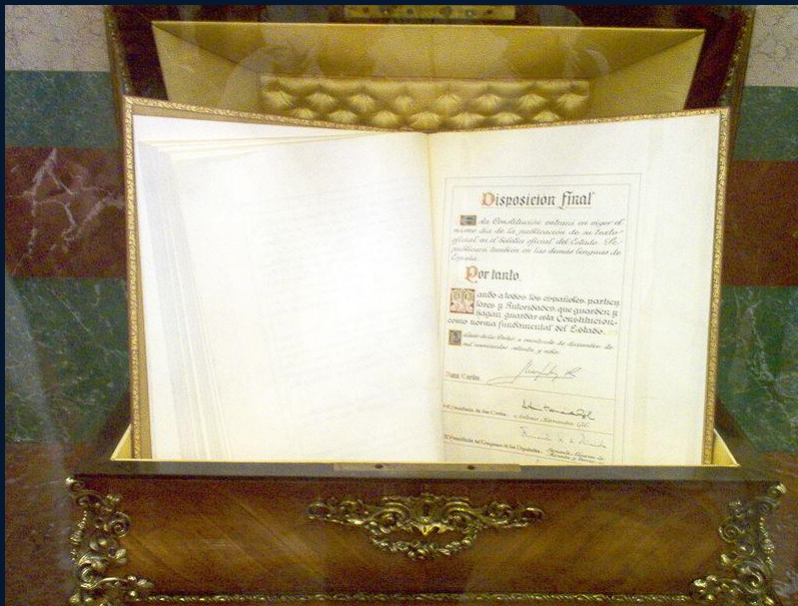 Disposicion final
Esta Constitucion entrará en vigor el
mismo dia de la publicacion de su texto
oficial en el boletin oficial del Estado. Se
publicará tambien en las demás lenguas de
España.
Por tanto,
Mando a todos los españoles, particu
lares y Autoridades, que guarden y
hagan guardar esta Constitucion
como norma fundamental del Estado.
Palacio de las Cortes, a veintisiete de diciembre de
mil novecientos setenta y ocho.
Juan Carlos
El Presidente de las Cortes. Antonio Hernandez Gil.
El Presidente del Congreso de los Diputados.